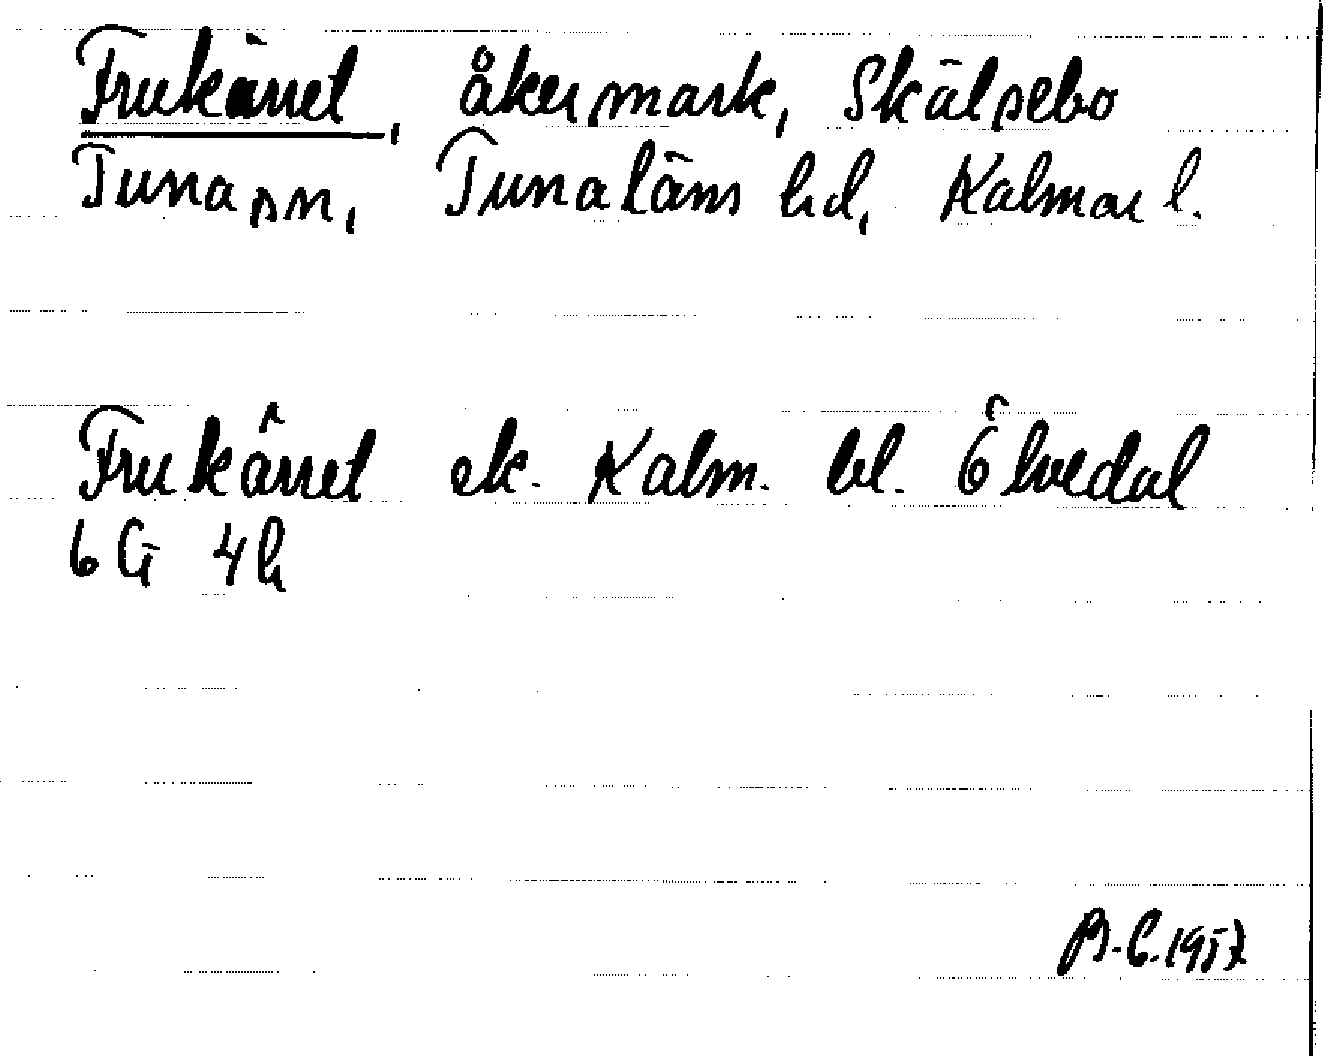 Frukärret, åkermark, Skälsebo
Tuna sn, Tunaläns hd, Kalmar l.
Frukärret ek. Kalm. bl. Ölvedal
6G 4h
B-C. 1957